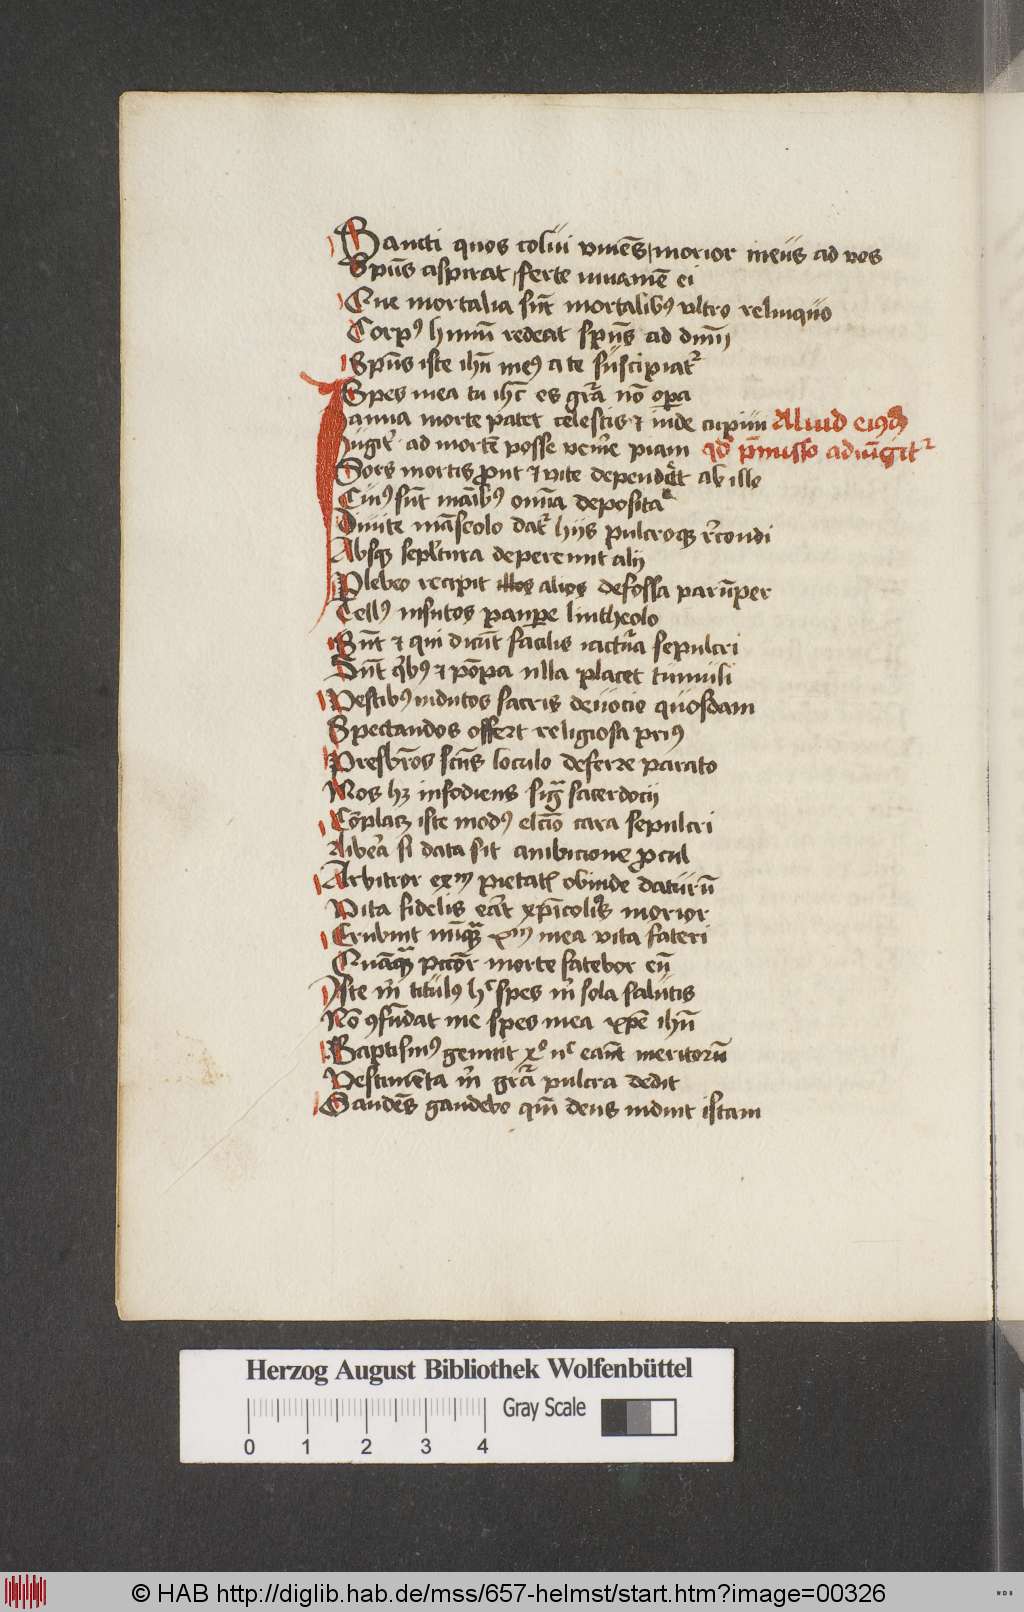 Sancti quos colui viuēs, morior meus ad vos
Spūs aspirat, ferte iuuamē ei
Que mortalia sūt mortalibꝰ vltro relinquo
Corpꝰ humū redeat spūs ad dnm̄
Spūs iste ihū meꝰ a te suscipiatᷣ
Spes mea tu ihc̄ es grā nō oꝑa
Ianua morte patet celestis ⁊ inde cupim Aliud eiꝰdē
Iūgit ad mortē posse veīre piam qd̄ p̄misso adiūgitᷣ
Sors mortis ꝓut ⁊ vite dependet ab illo
Cuiꝰ sūt manibꝰ omīa deposita
Diuite māseolo datᷣ hijs pulcroqꝫ rcondi
Absqꝫ sepltura depereunt alij
Plebeo recipit illos alios defossa parūper
Tellꝰ insutos paupe lintheolo
Sūt ⁊ qui dicūt facilis iactura sepulcri
Sūt qbꝰ ⁊ pōpa vlla placet tumuli
Vestibꝰ indutos sacris deuocio quosdam
Spectandos offert religiosa priꝰ
Presbrōs scūs loculo deferre parato
Mos hꝫ infodiens sig sacerdocij
Cōplacꝫ iste modꝰ elcīo cara sepulcri
Libera si data sit ambicione ꝓcul
Arbitror exm pietatis obinde daturū
Vita fidelis erāt xp̄icolis morior
Erubuit nūqꝫ xm mea vita fateri
Quāqꝫ pctor morte fatebor eū
Iste m̄ titulꝰ hc spes m̄ sola salutis
Nō ꝯfūdat me spes mea xp̄e ihū
Baptismꝰ genuit xo nc eāt meritorū
Vestimēta m̄ grā pulcra dedit
Gaudēs gaudebo qm̄ deus induit istam
Herzog August Bibliothek Wolfenbüttel
Gray Scale
0 1 2 3 4
© HAB http://diglib.hab.de/mss/657-helmst/start.htm?image=00326